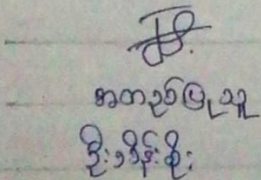 အတည်ပြုသူ
ဦးဝိန်းစိုး